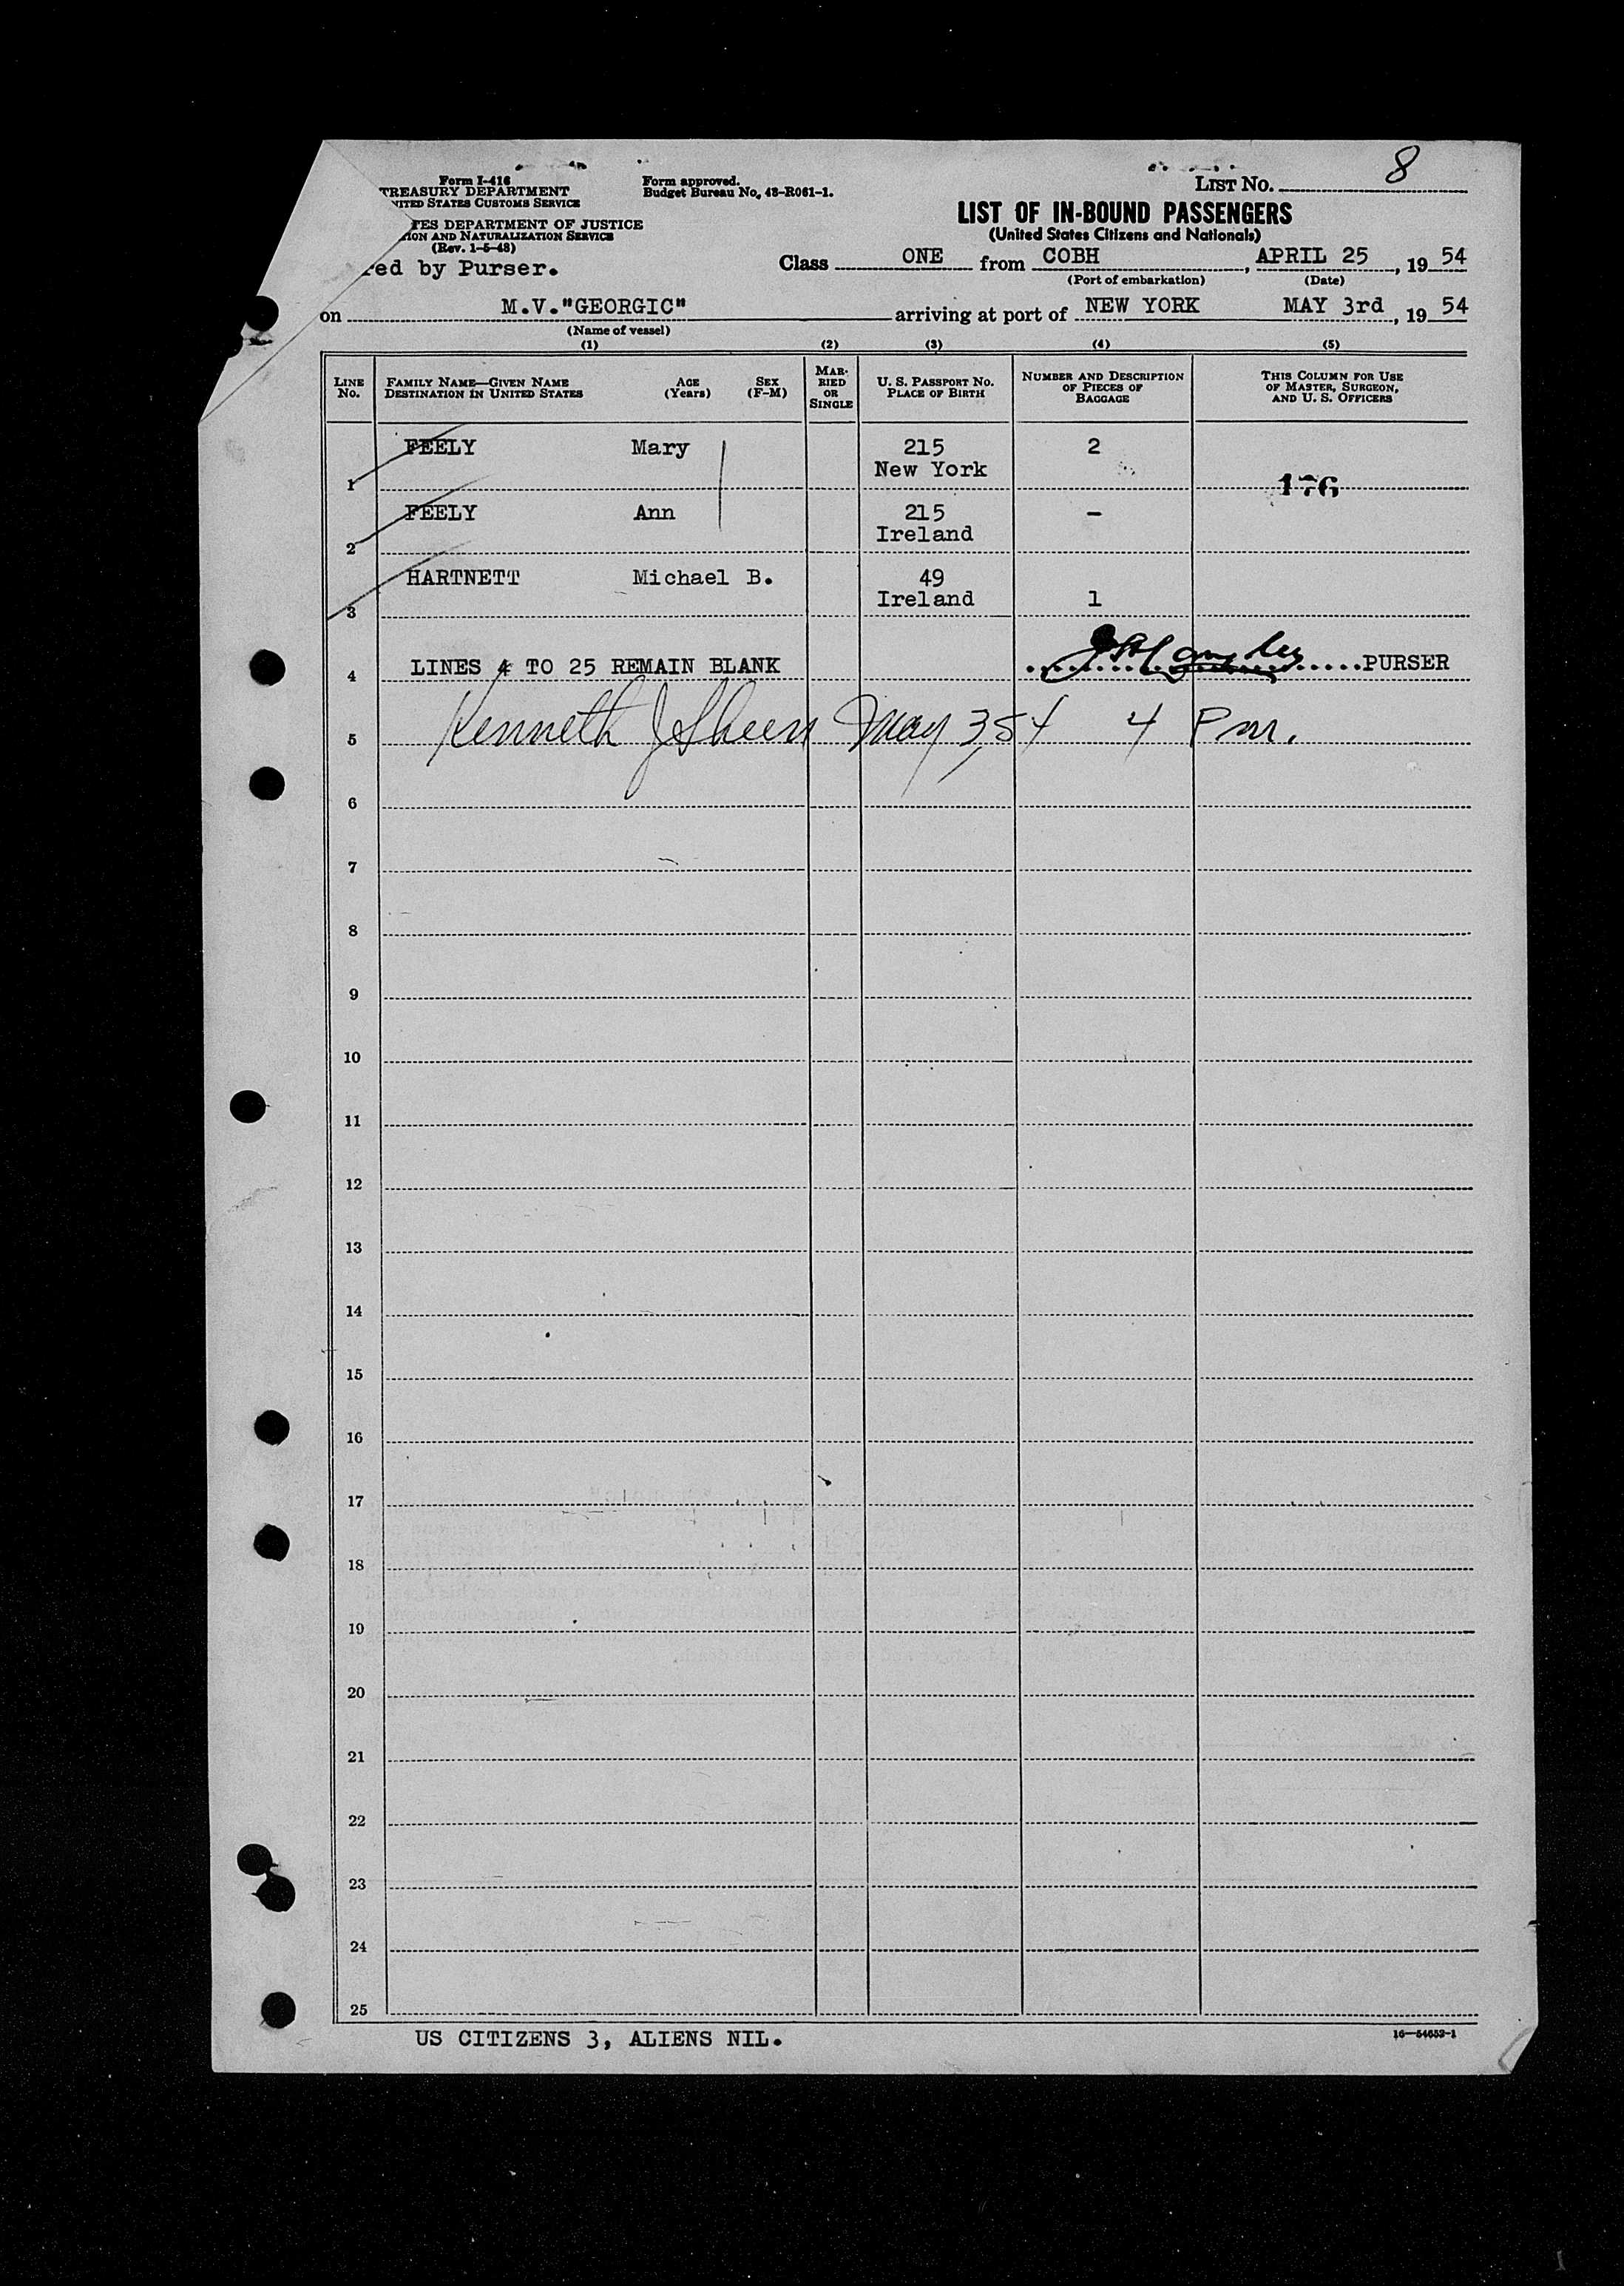 8
Form I-416
TREASURY DEPARTMENT
UNITED STATES CUSTOMS SERVICE
Form approved.
Budget Bureau No. 43-R061-1.
LIST No.
TES DEPARTMENT OF JUSTICE
ION AND NATURALIZATION SERVICE
(Rev. 1-5-48)
red by Purser.
LIST OF IN-BOUND PASSENGERS
(United States Citizens and Nationals)
Class ONE from COBH, APRIL 25, 19 54
(Port of embarkation) (Date)
on M.V."GEORGIC" arriving at port of NEW YORK MAY 3rd, 19 54
(Name of vessel)
(1) (2) (3) (4) (5)
LINE No. FAMILY NAME—GIVEN NAME DESTINATION IN UNITED STATES AGE (Years) SEX (F-M) MARRIED OR SINGLE U. S. PASSPORT No. PLACE OF BIRTH NUMBER AND DESCRIPTION OF PIECES OF BAGGAGE THIS COLUMN FOR USE OF MASTER, SURGEON, AND U. S. OFFICERS
FEELY Mary 215 2
New York
1 176
FEELY Ann 215 -
Ireland
2
HARTNETT Michael B. 49
Ireland 1
3
4 LINES 4 TO 25 REMAIN BLANK PURSER
5 Kenneth J Sheen May 3, 54 4 Pm.
6
7
8
9
10
11
12
13
14
15
16
17
18
19
20
21
22
23
24
25
US CITIZENS 3, ALIENS NIL.
16—54653-1